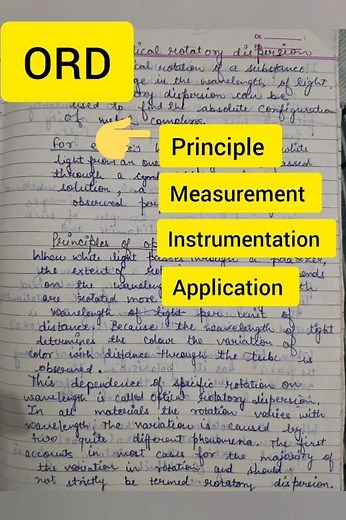 ORD
ical rotatory dispersion
cal rotation of a substance
ge in the wavelength of light.
ry dispersion can be
used to find the absolute configuration
of metal complexes.
For
white
light from an
passed
through a
solution,
observed
Principle
Measurement
Instrumentation
Application
Principles of op
When white light passes through a polarizer,
the extent of
on the
are rotated more
wavelength of light per unit of
distance. Because the wavelength of light
determines the colour the variation of
color with distance through the tube is
observed.
This dependence of specific rotation on
wavelength is called optical rotatory dispersion.
In all materials the rotation varies with
wavelength. The variation is caused by
two quite different phenomena. The first
accounts in most cases for the majority of
the variation in rotation and should
not strictly be termed rotatory dispersion.